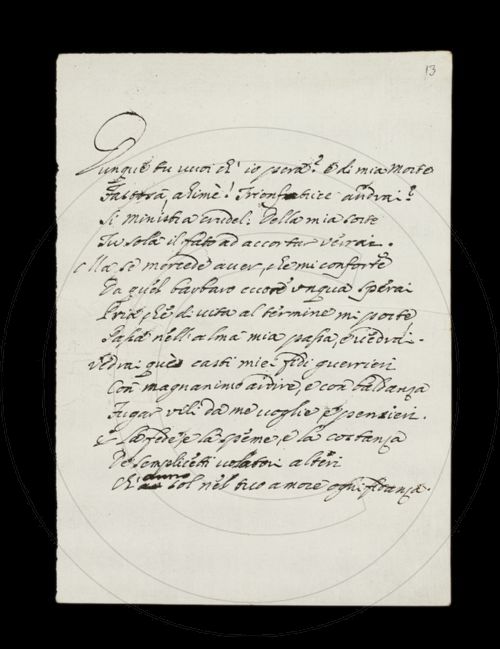 13
Dunque tu vuoi ch' io pera? e di mia morte
Fastosa, ahimè! Trionfatrice andrai?
Sì ministra crudel della mia sorte
Tu sola il fato ad accortar verrai.
Ma se mercede aver, che mi conforte
Da quel barbaro cuore unqua sperai
Pria che di vita al termine mi porte
Passa nell' alma mia passa, e vedrai.
Vedrai que casti miei fidi guerrieri
Con magnanimo ardire, e con baldanza
Fugar vili da me voglie e pensieri.
E la fede e la speme, e la costanza
De semplicetti volatori alteri
Ch' anno sol nel tuo amore ogni fidanza.